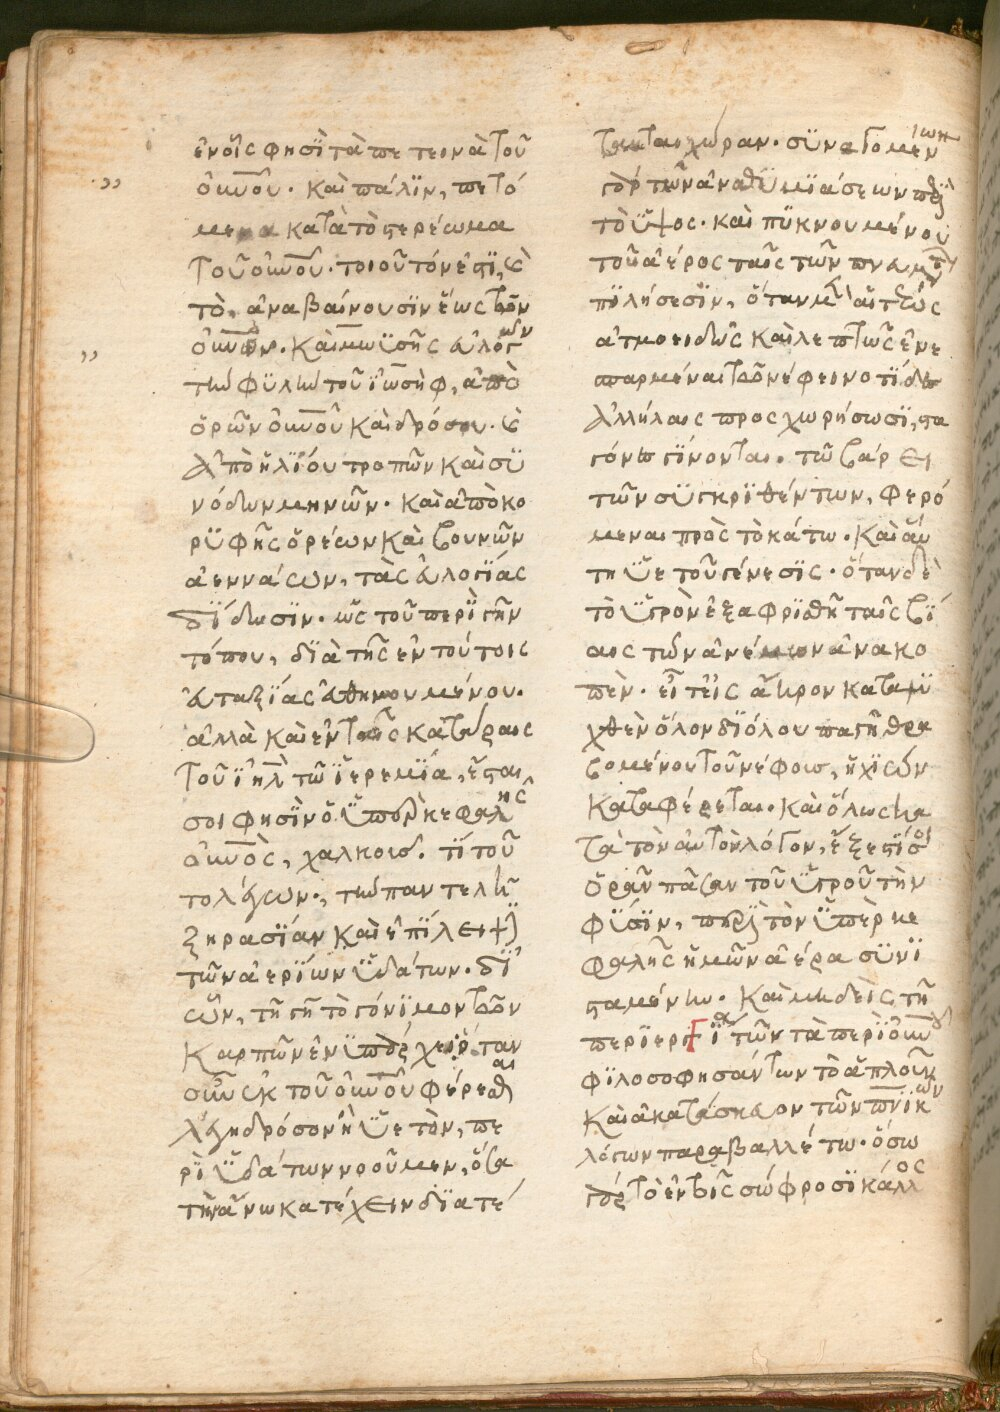 ἐν οἷς φησὶ τὰ πετεινὰ τοῦ
οὐνοῦ. καὶ πάλϊν, πετό
μενα κατὰ τὸ στερέωμα
τοῦ οὐνοῦ. τοιοῦτόν ἐστϊ, καὶ
τὸ, ἀναβαίνουσϊν ἕως τῶν
οὐνῶν. καὶ μωϋσῆς εὐλογῶν
τὴν φϋλὴν τοῦ ϊωσὴφ, ἀπὸ
ὁρῶν οὐνοῦ καὶ δρόσου. καὶ
ἀπὸ ἡλίου τροπῶν καὶ σϋ
νόδων μηνῶν. καὶ ἀπὸ κο
ρϋφῆς ὀρέων καὶ βουνῶν
ἀεννάων, τὰς εὐλογΐας
δΐδωσϊν. ὡς τοῦ περὶ γῆν
τόπου, δϊὰ τῆς ἐν τούτοις
εὐταξΐας εὐθηνουμένου.
ἀλλὰ καὶ ἐν ταῖς κατάραις
τοῦ ϊηλ τῶ ϊερεμΐα, ἔσται
σοι φησὶν ὁ ὑπὲρ κεφαλῆς
οὐνὸς, χαλκοῦς. τί τοῦ
το λέγων., τὴν παντελῆ
ξηρασΐαν καὶ ἐπΐλειψϊν
τῶν ἀερΐων ὑδάτων. δϊ
ὧν, τῆ γῆ τὸ γόνϊμον τῶν
καρπῶν ἐνϋπάρχει. ὅταν
οὖν ἐκ τοῦ οὐνοῦ φέρεσθαι
λέγη δρόσον ἢ ὑετὸν, πε
ρὶ ὑδάτων νοοῦμεν, ὅσα
τὴν ἄνω κατέχειν δϊατέ
τακται χώραν. σϋναγομένων
γὰρ τῶν ἀναθϋμϊάσεων περὶ
τὸ ὕψος. καὶ πϋκνουμένου
τοῦ ἀέρος ταῖς τῶν πνευμάτων
πϊλήσεσϊν, ὅταν μὲν αἱ τέως
ἀτμοειδῶς καὶ λεπτῶς ἐνε
σπαρμέναι τῶ νέφει νοτΐδες
ἀλλήλαις προσχωρήσωσϊ, στα
γόνες γΐνονται. τῶ βάρει
τῶν σϋγκρϊθέντων, φερό
μεναι πρὸς τὸ κάτω. καὶ αὕ
τη ὑετοῦ γένεσϊς. ὅταν δὲ
τὸ ὑγρὸν ἐξαφρϊσθῆ ταῖς βΐ
αις τῶν ἀνέμων ἀνακο
πὲν. εἶτ εἰς ἄκρον καταψϋ
χθὲν ὅλον δϊόλου παγῆ θρυ
βομένου τοῦ νέφους, ἡ χϊὼν
καταφέρεται. καὶ ὅλως κα
τὰ τὸν αὐτὸν λόγον, ἔξεστΐ σοι
ὁρᾶν πᾶσαν τοῦ ὑγροῦ τὴν
φύσϊν, περὶ τὸν ὑπὲρ κε
φαλῆς ἡμῶν ἀέρα σϋνϊ
σταμένην. καὶ μηδεὶς τῆ
περϊεργΐα τῶν τὰ περὶ οὐνοῦ
φϊλοσοφησάντων τὸ ἁπλοῦν
καὶ ἀκατάσκευον τῶν πνϊκῶν
λόγων παραβαλλέτω. ὅσω
γὰρ τὸ ἐν ταῖς σώφροσϊ κάλλος